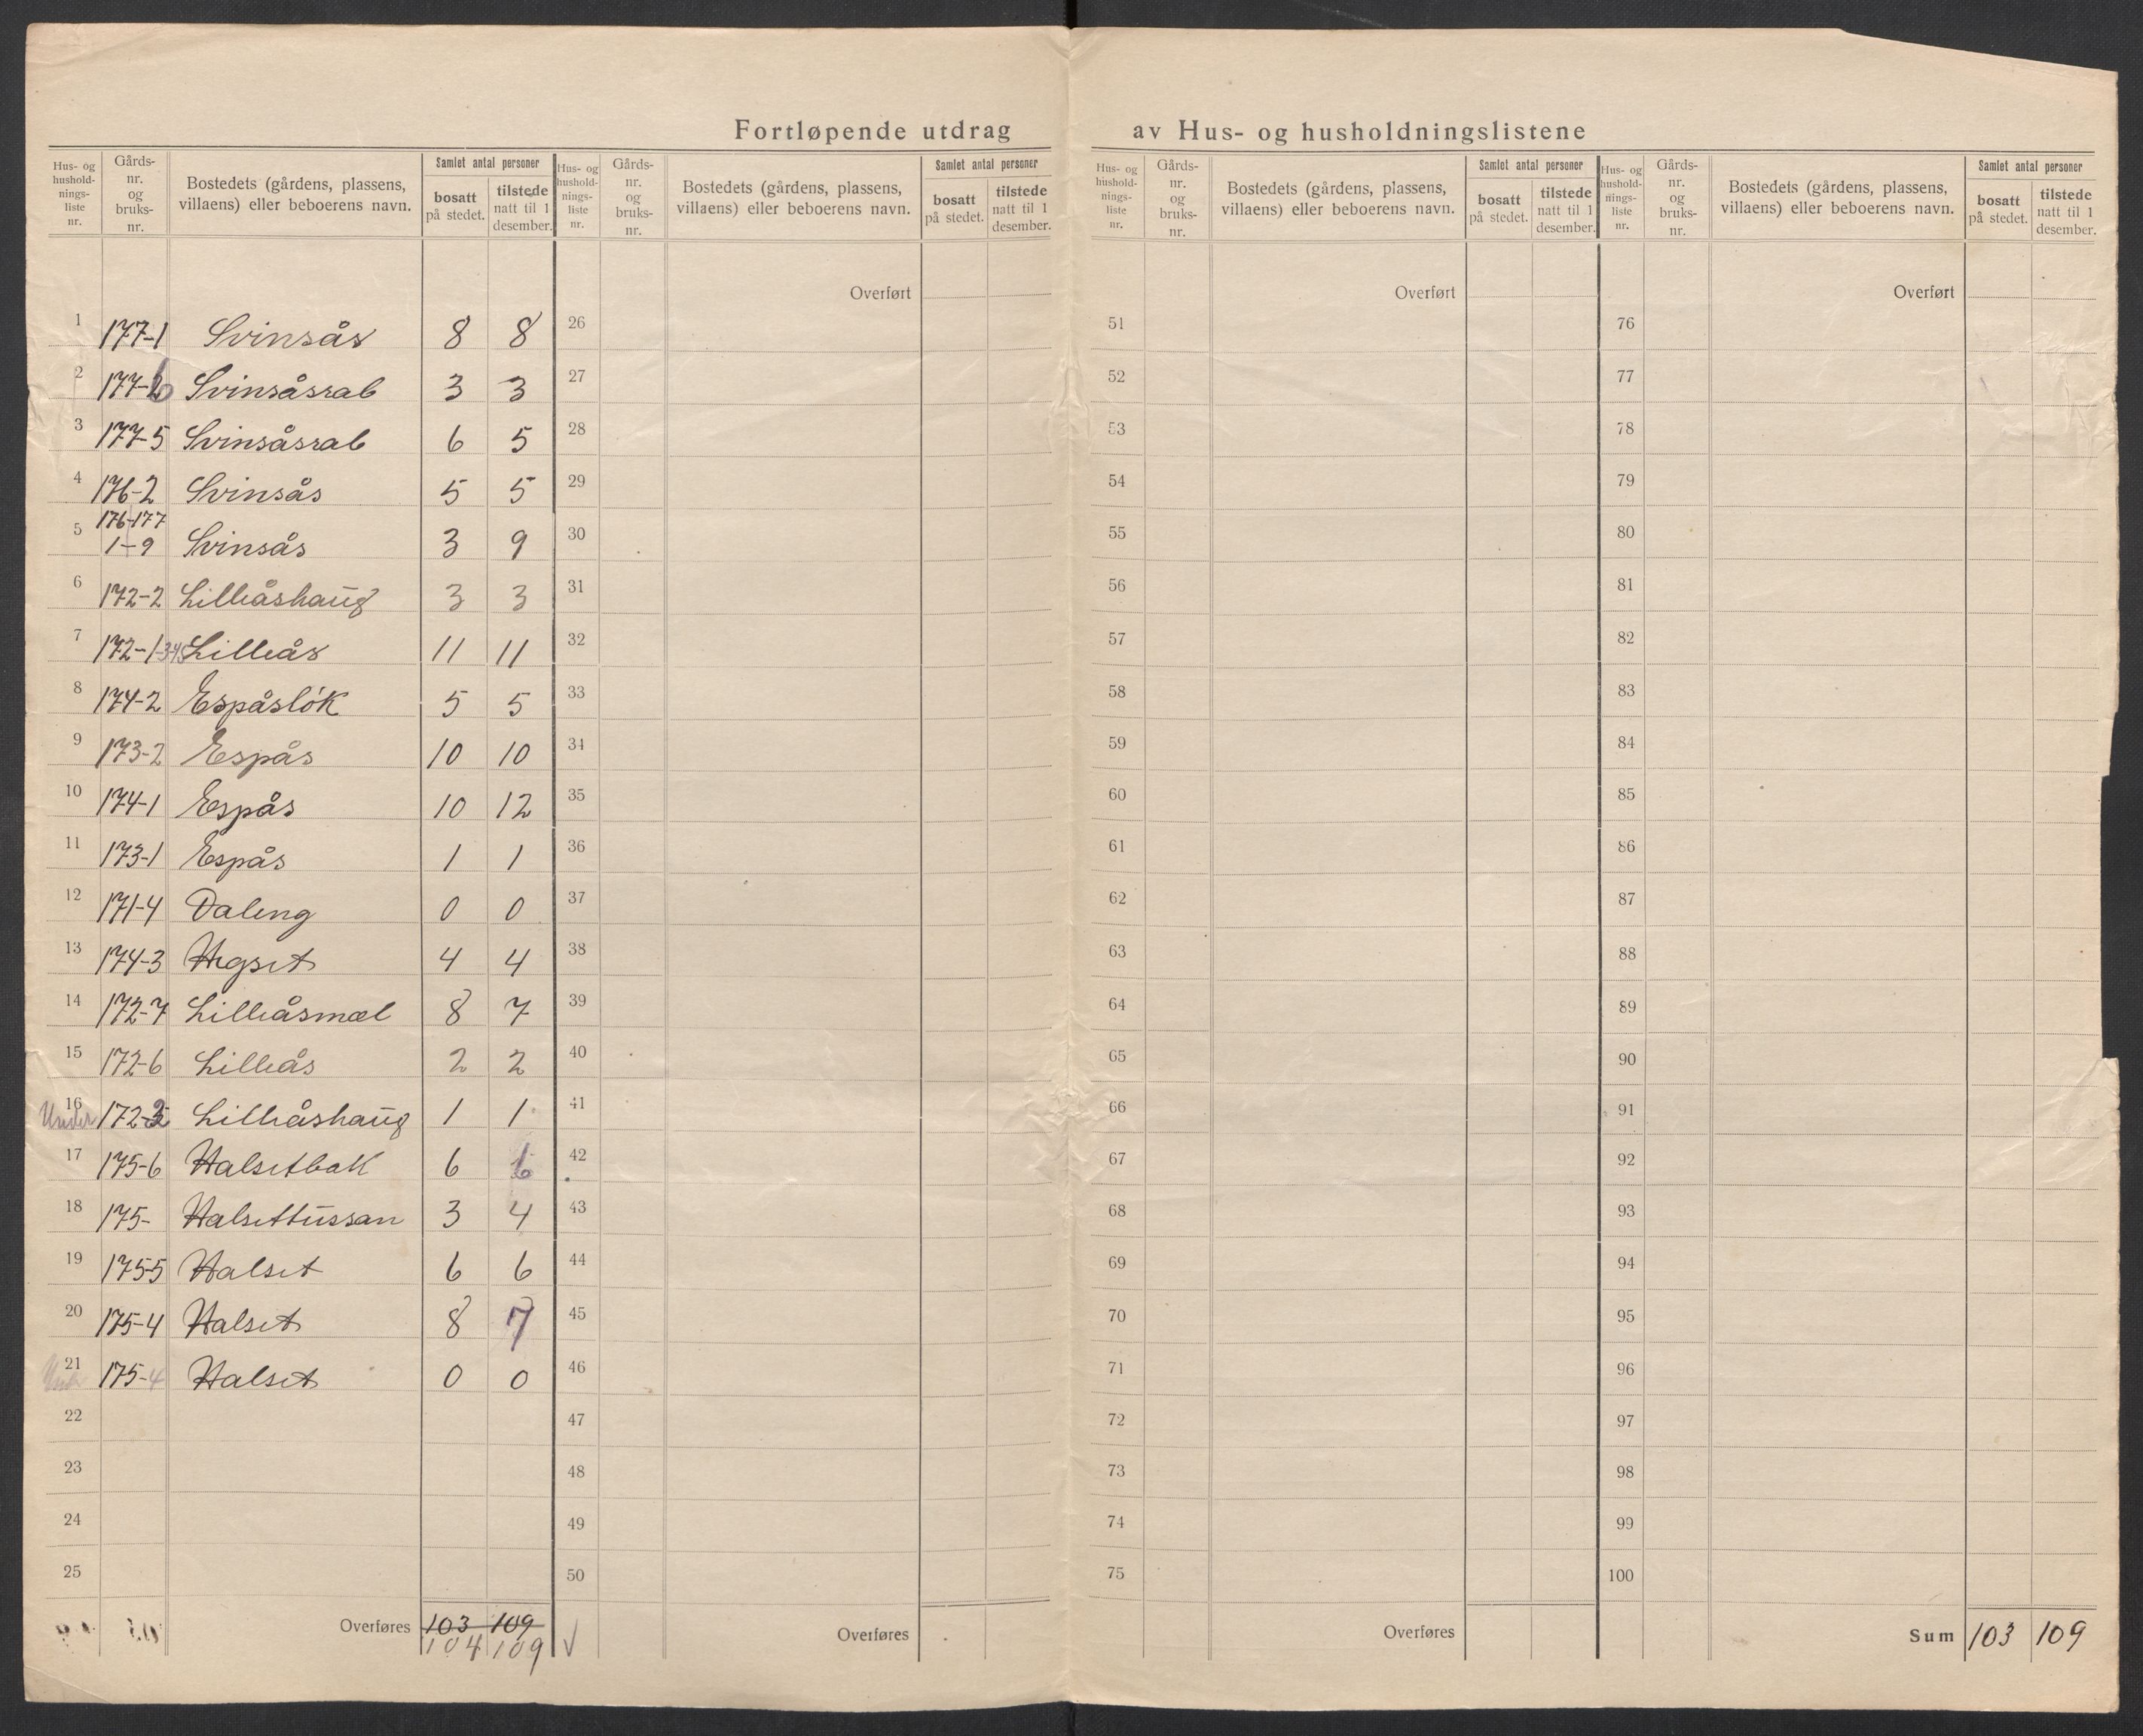 Fortløpende utdrag av Hus- og husholdningslistene
Hus- og husholdnings-liste nr. Gårds-nr. og bruks-nr. Bostedets (gårdens, plassens, villaens) eller beboerens navn. Samlet antal personer bosatt på stedet. tilstede natt til 1 desember.
Hus- og husholdnings-liste nr. Gårds-nr. og bruks-nr. Bostedets (gårdens, plassens, villaens) eller beboerens navn. Samlet antal personer bosatt på stedet. tilstede natt til 1 desember.
Hus- og husholdnings-liste nr. Gårds-nr. og bruks-nr. Bostedets (gårdens, plassens, villaens) eller beboerens navn. Samlet antal personer bosatt på stedet. tilstede natt til 1 desember.
Hus- og husholdnings-liste nr. Gårds-nr. og bruks-nr. Bostedets (gårdens, plassens, villaens) eller beboerens navn. Samlet antal personer bosatt på stedet. tilstede natt til 1 desember.
Overført Overført Overført
1 177-1 Svinsås 8 8 26 51 76
2 177-6 Svinsåsrab 3 3 27 52 77
3 177-5 Svinsåsrab 6 5 28 53 78
4 176-2 Svinsås 5 5 29 54 79
5 176-177 1-9 Svinsås 3 9 30 55 80
6 172-2 Lilleåshaug 3 3 31 56 81
7 172-1-345 Lilleås 11 11 32 57 82
8 174-2 Espåslók 5 5 33 58 83
9 173-2 Espås 10 10 34 59 84
10 174-1 Espås 10 12 35 60 85
11 173-1 Espås 1 1 36 61 86
12 171-4 Daleng 0 0 37 62 87
13 174-3 Hegset 4 4 38 63 88
14 172-7 Lilleåsmæl 8 7 39 64 89
15 172-6 Lilleås 2 2 40 65 90
16 Under 172-2 Lilleåshaug 1 1 41 66 91
17 175-6 Halsetbak 6 6 42 67 92
18 175- Halsettussan 3 4 43 68 93
19 175-5 Halset 6 6 44 69 94
20 175-4 Halset 8 7 45 70 95
21 175-4 Halset 0 0 46 71 96
22 47 72 97
23 48 73 98
24 49 74 99
25 50 75 100
Overføres 103 109 Overføres Overføres Sum 103 109
104 109